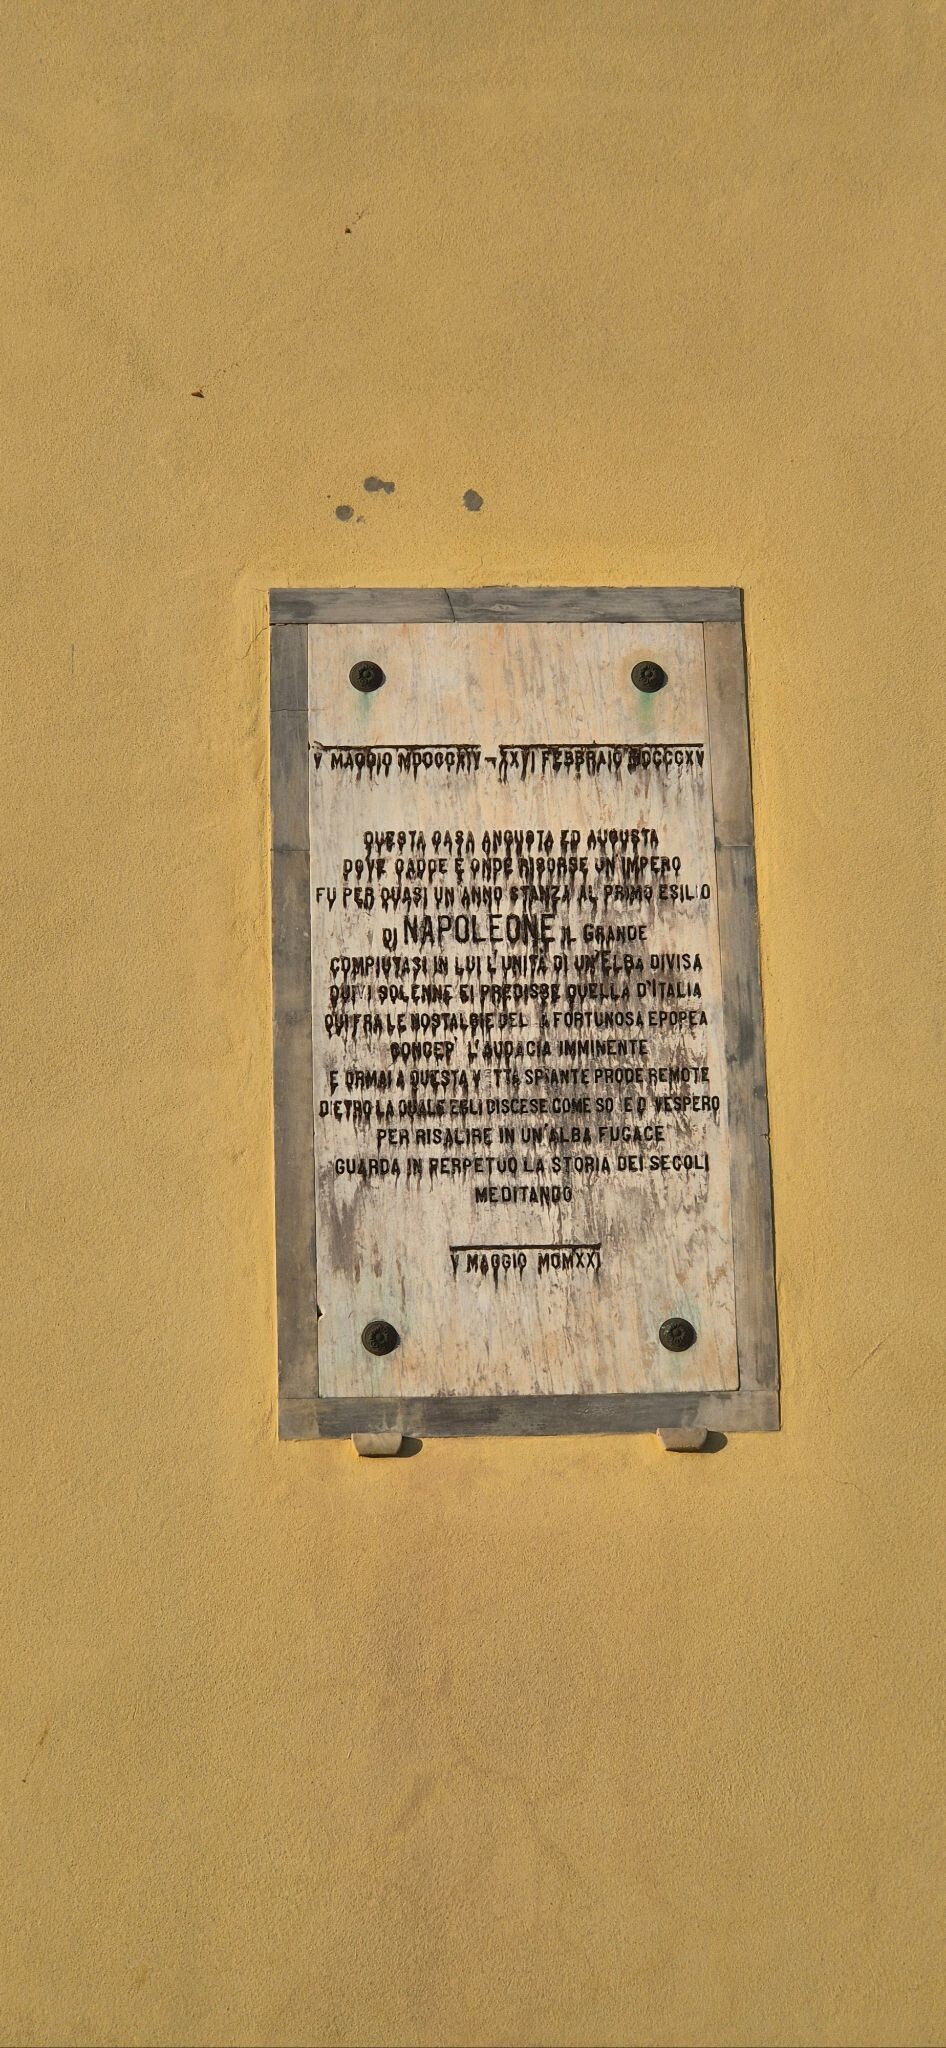 V MAGGIO MDCCCXIV – XXVI FEBBRAIO MDCCCXV
QUESTA CASA ANGUSTA ED AUGUSTA
DOVE CADDE E ONDE RISORSE UN IMPERO
FU PER QUASI UN ANNO STANZA AL PRIMO ESILIO
DI NAPOLEONE IL GRANDE
COMPIUTASI IN LUI L'UNITÀ DI UN'ELBA DIVISA
QUIVI SOLENNE EI PREDISSE QUELLA D'ITALIA
QUI FRA LE NOSTALGIE DELLA FORTUNOSA EPOPEA
CONCEP' L'AUDACIA IMMINENTE
E ORMAI A QUESTA VETTA SPIANTE PRODE REMOTE
DIETRO LA QUALE EGLI DISCESE COME SOLE D VESPERO
PER RISALIRE IN UN'ALBA FUGACE
GUARDA IN PERPETUO LA STORIA DEI SECOLI
MEDITANDO
V MAGGIO MCMXXI